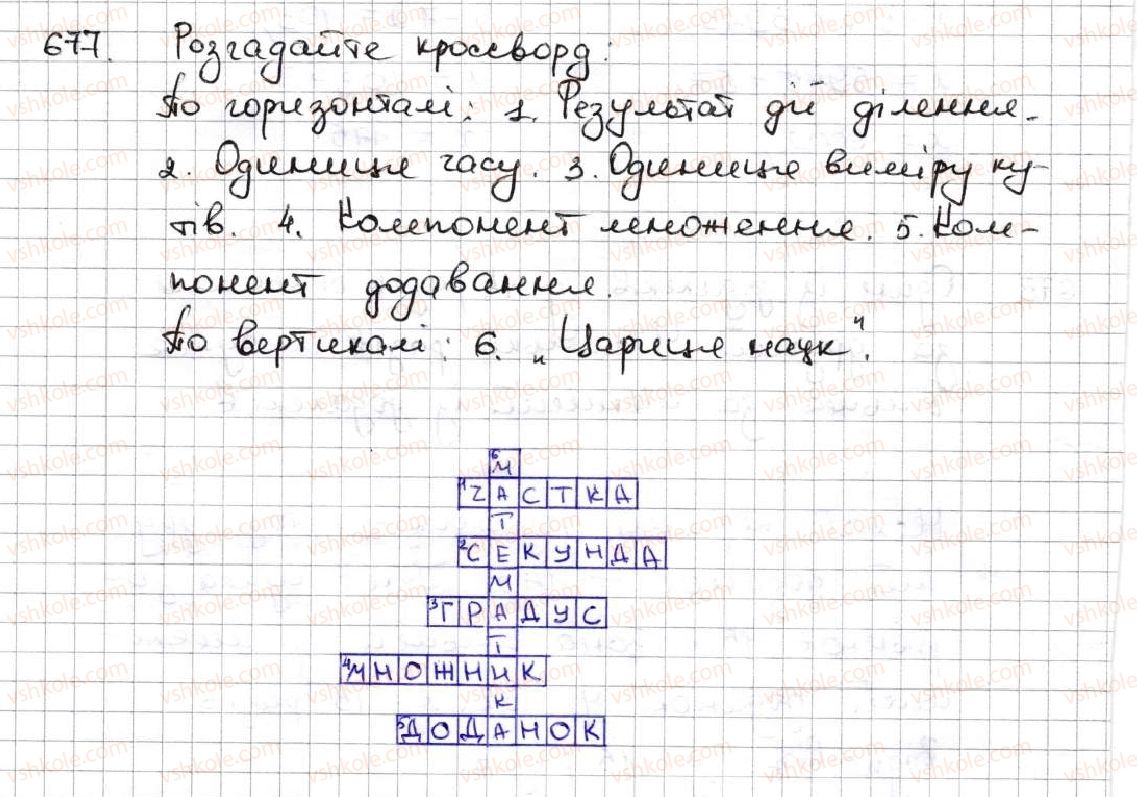 677. Розгадайте кросворд:
По горизонталі: 1. Результат дії ділення.
2. Одиниця часу. 3. Одиниця виміру ку-
тів. 4. Компонент множення. 5. Ком-
понент додавання.
По вертикалі: 6. „Цариця наук".
6М
1ЧАСТКА
Т
2СЕКУНДА
М
3ГРАДУС
Т
4МНОЖНИК
К
5ДОДАНОК